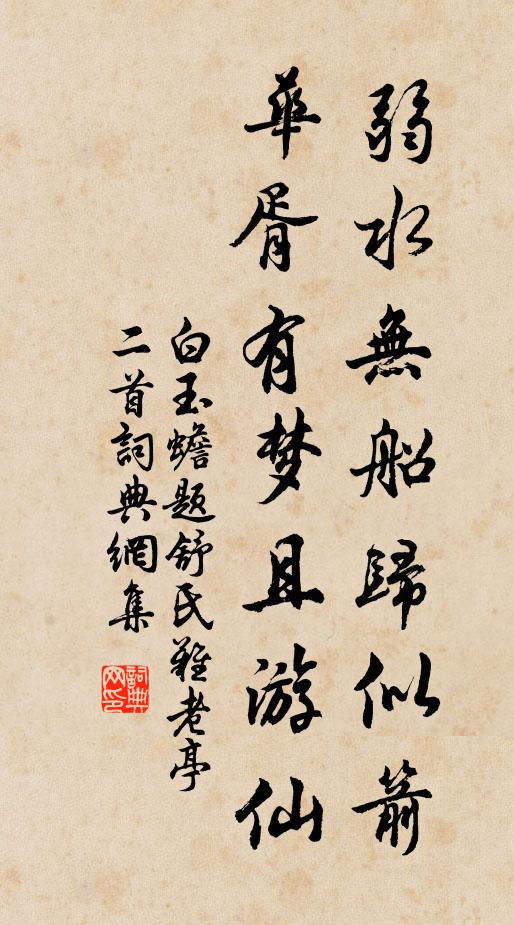 弱水無船歸似箭
華胥有梦且游仙
白玉蟾題舒氏難老亭
二首詞典網集
詞典
网印